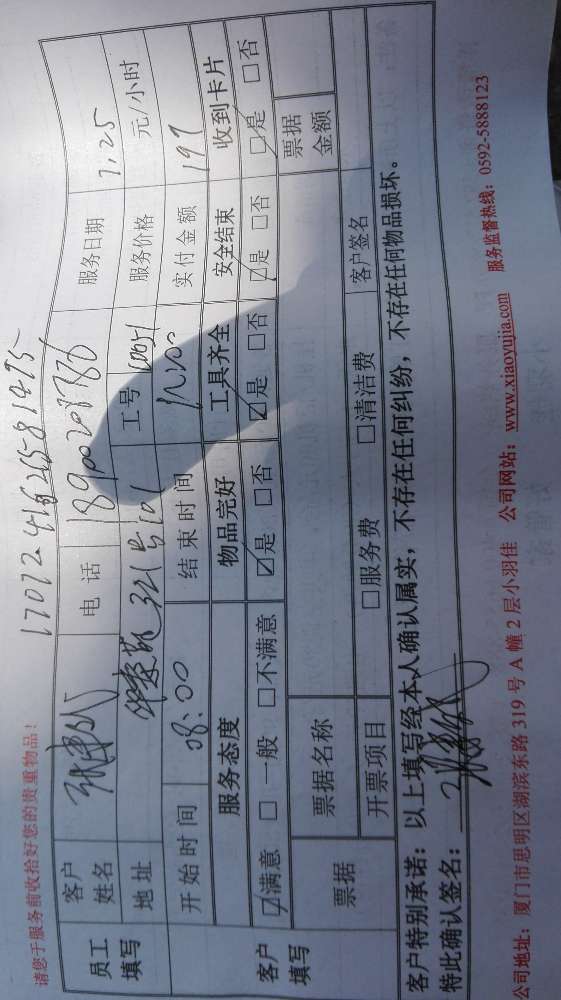 请您于服务前收拾好您的贵重物品！
1707241626581475
员工填写
客户姓名
电 话 18900201786
服务日期 7.25
地址 321号101
工号
服务价格 元/小时
开始时间 08:00
结束时间
实付金额 197
客户填写
服务态度 物品完好 工具齐全 安全结束 收到卡片
☑满意 □一般 □不满意 ☑是 □否 ☑是 □否 ☑是 □否 ☑是 □否
票据 票据名称
票据金额
开票项目 □服务费 □清洁费 客户签名
客户特别承诺：以上填写经本人确认属实，不存在任何纠纷，不存在任何物品损坏。
特此确认签名：
公司地址：厦门市思明区湖滨东路 319 号 A 幢 2 层小羽佳 公司网站：www.xiaoyujia.com 服务监督热线：0592-5888123